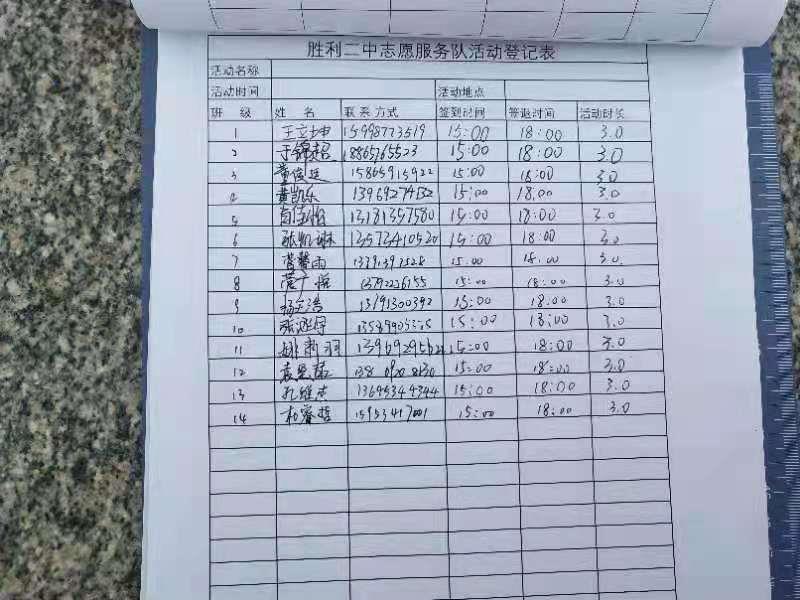 胜利二中志愿服务队活动登记表
活动名称
活动时间 活动地点
班 级 姓 名 联系方式 签到时间 签退时间 活动时长
1 王立坤 15998773519 15:00 18:00 3.0
2 于锦超 18865765523 15:00 18:00 3.0
3 董俊廷 15865915922 15:00 18:00 3.0
4 黄凯乐 13969274132 15:00 18:00 3.0
5 13181357580 15:00 18:00 3.0
6 张凯琳 13573410520 15:00 18:00 3.0
7 15:00 18:00 3.0
8 13792226155 15:00 18:00 3.0
9 13191300392 15:00 18:00 3.0
10 15:00 18:00 3.0
11 15:00 18:00 3.0
12 15:00 18:00 3.0
13 孔维杰 13695344344 15:00 18:00 3.0
14 15953417001 15:00 18:00 3.0